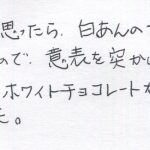 思ったら、白あんの
ので、意表を突か
ホワイトチョコレート
た。